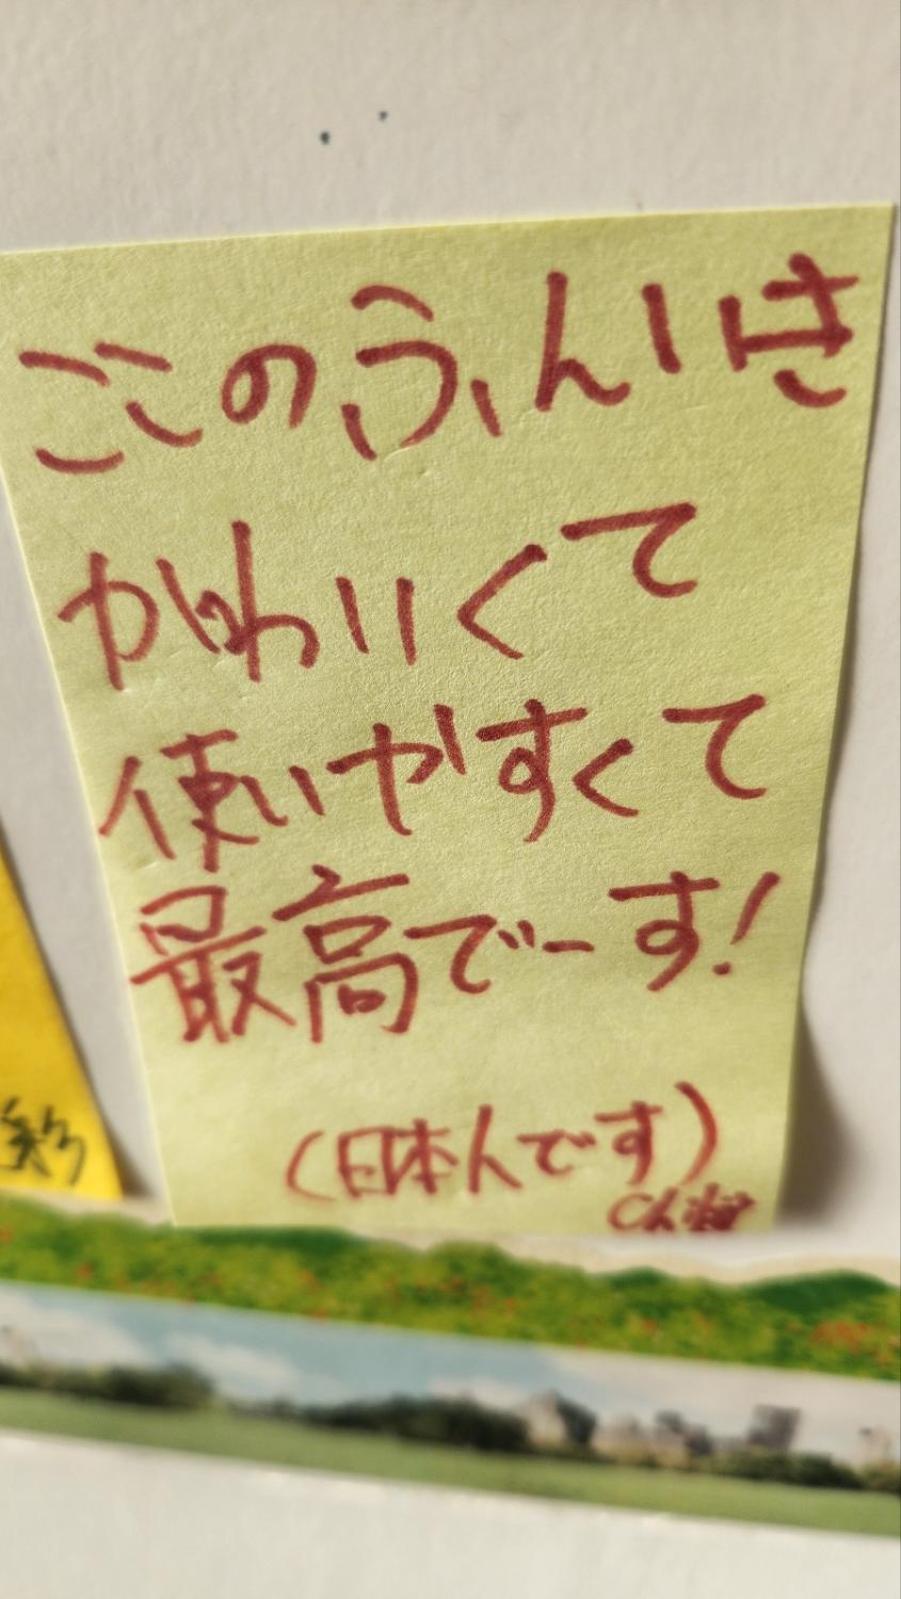 ここのふんいき
かわいくて
使いやすくて
最高でーす!
(日本人です)
彩